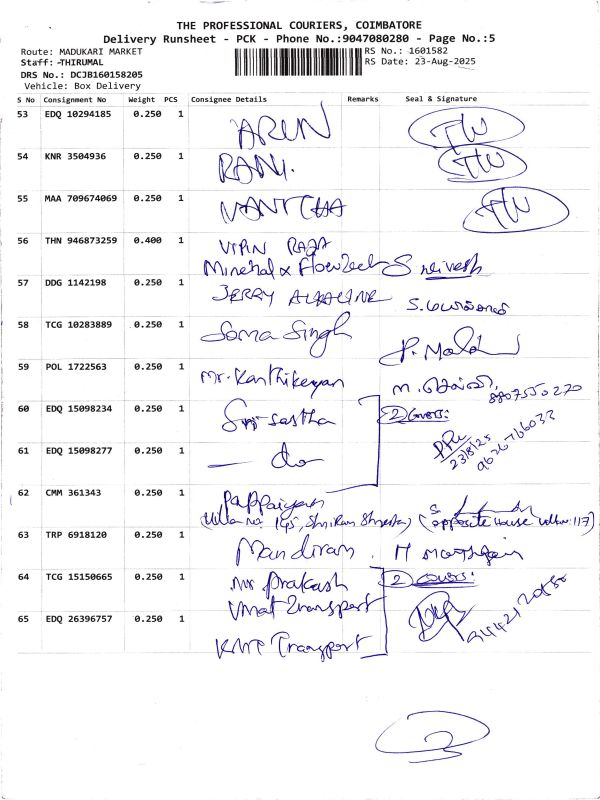 THE PROFESSIONAL COURIERS, COIMBATORE
Delivery Runsheet - PCK - Phone No.:9047080280 - Page No.:5
Route: MADUKARI MARKET RS No.: 1601582
Staff: THIRUMAL RS Date: 23-Aug-2025
DRS No.: DCJB160158205
Vehicle: Box Delivery
S No Consignment No Weight PCS Consignee Details Remarks Seal & Signature
53 EDQ 10294185 0.250 1 ARUN
54 KNR 3504936 0.250 1 RANI.
55 MAA 709674069 0.250 1 VANITHA
56 THN 946873259 0.400 1 VIPIN RAJA
57 DDG 1142198 0.250 1 JERRY ALKALINE
58 TCG 10283889 0.250 1 Soma Singh
59 POL 1722563 0.250 1 Mr. Karthikeyan 8807550270
60 EDQ 15098234 0.250 1 Sri Sastha 2 Covers:
61 EDQ 15098277 0.250 1 — do 23/8/25
62 CMM 361343 0.250 1 Pappaiyan
(opposite House Villa: 117)
63 TRP 6918120 0.250 1 Mandiram.
64 TCG 15150665 0.250 1 Mr Prakash 2 Covers:
Transport
65 EDQ 26396757 0.250 1 Transport
3